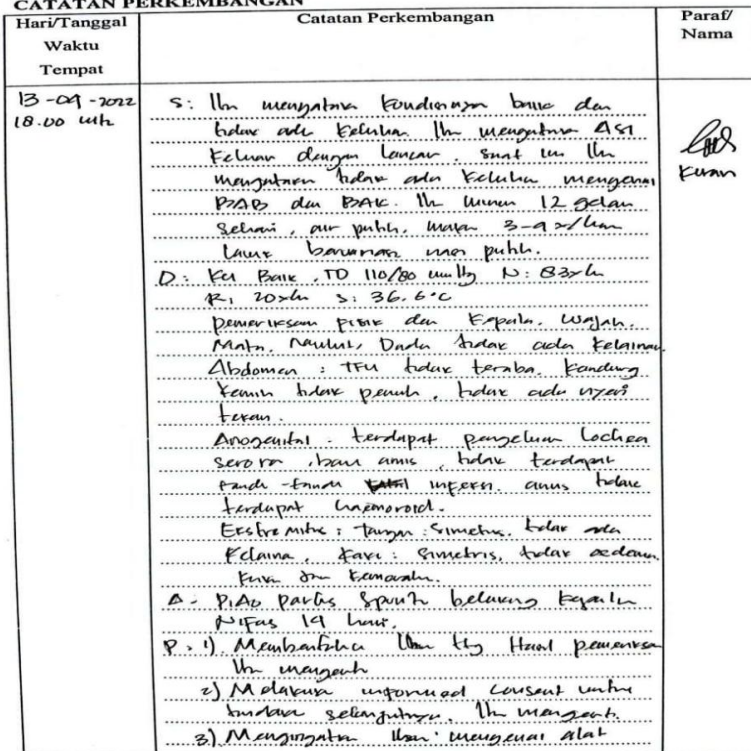 CATATAN PERKEMBANGAN
Hari/Tanggal
Waktu
Tempat
Catatan Perkembangan
Paraf/
Nama
13-09-2022
18.00 wib
S: Ibu mengatakan kondisinya baik dan
tidak ada keluhan. Ibu mengatakan ASI
keluar dengan lancar. Saat ini Ibu
mengatakan tidak ada keluhan mengenai
BAB dan BAK. Ibu minum 12 gelas
sehari, air putih, makan 3-4 x/hari
nasi putih.
Kiran
O: KU Baik, TD 110/80 mmHg N: 83x/m
R: 20x/m S: 36.6°C
pemeriksaan fisik dari Kepala, Wajah,
Mata, Mulut, Dada tidak ada kelainan.
Abdomen: TFU tidak teraba. Kandung
kemih tidak penuh, tidak ada nyeri
tekan.
Anogenital: terdapat pengeluaran Lochea
serosa, bau amis, tidak terdapat
tanda-tanda infeksi. anus tidak
terdapat haemoroid.
Ekstremitas: tangan: Simetris, tidak ada
kelaina, kaki: Simetris, tidak oedema.
dan kemerahan.
A: P1A0 partus spontan belakang kepala
Nifas 14 hari.
P: 1) Memberitahu Ibu ttg Hasil pemeriksa
Ibu mengerti
2) Melakukan informed consent untuk
tindakan selanjutnya. Ibu mengerti.
3) Mengingatkan Ibu mengenai alat